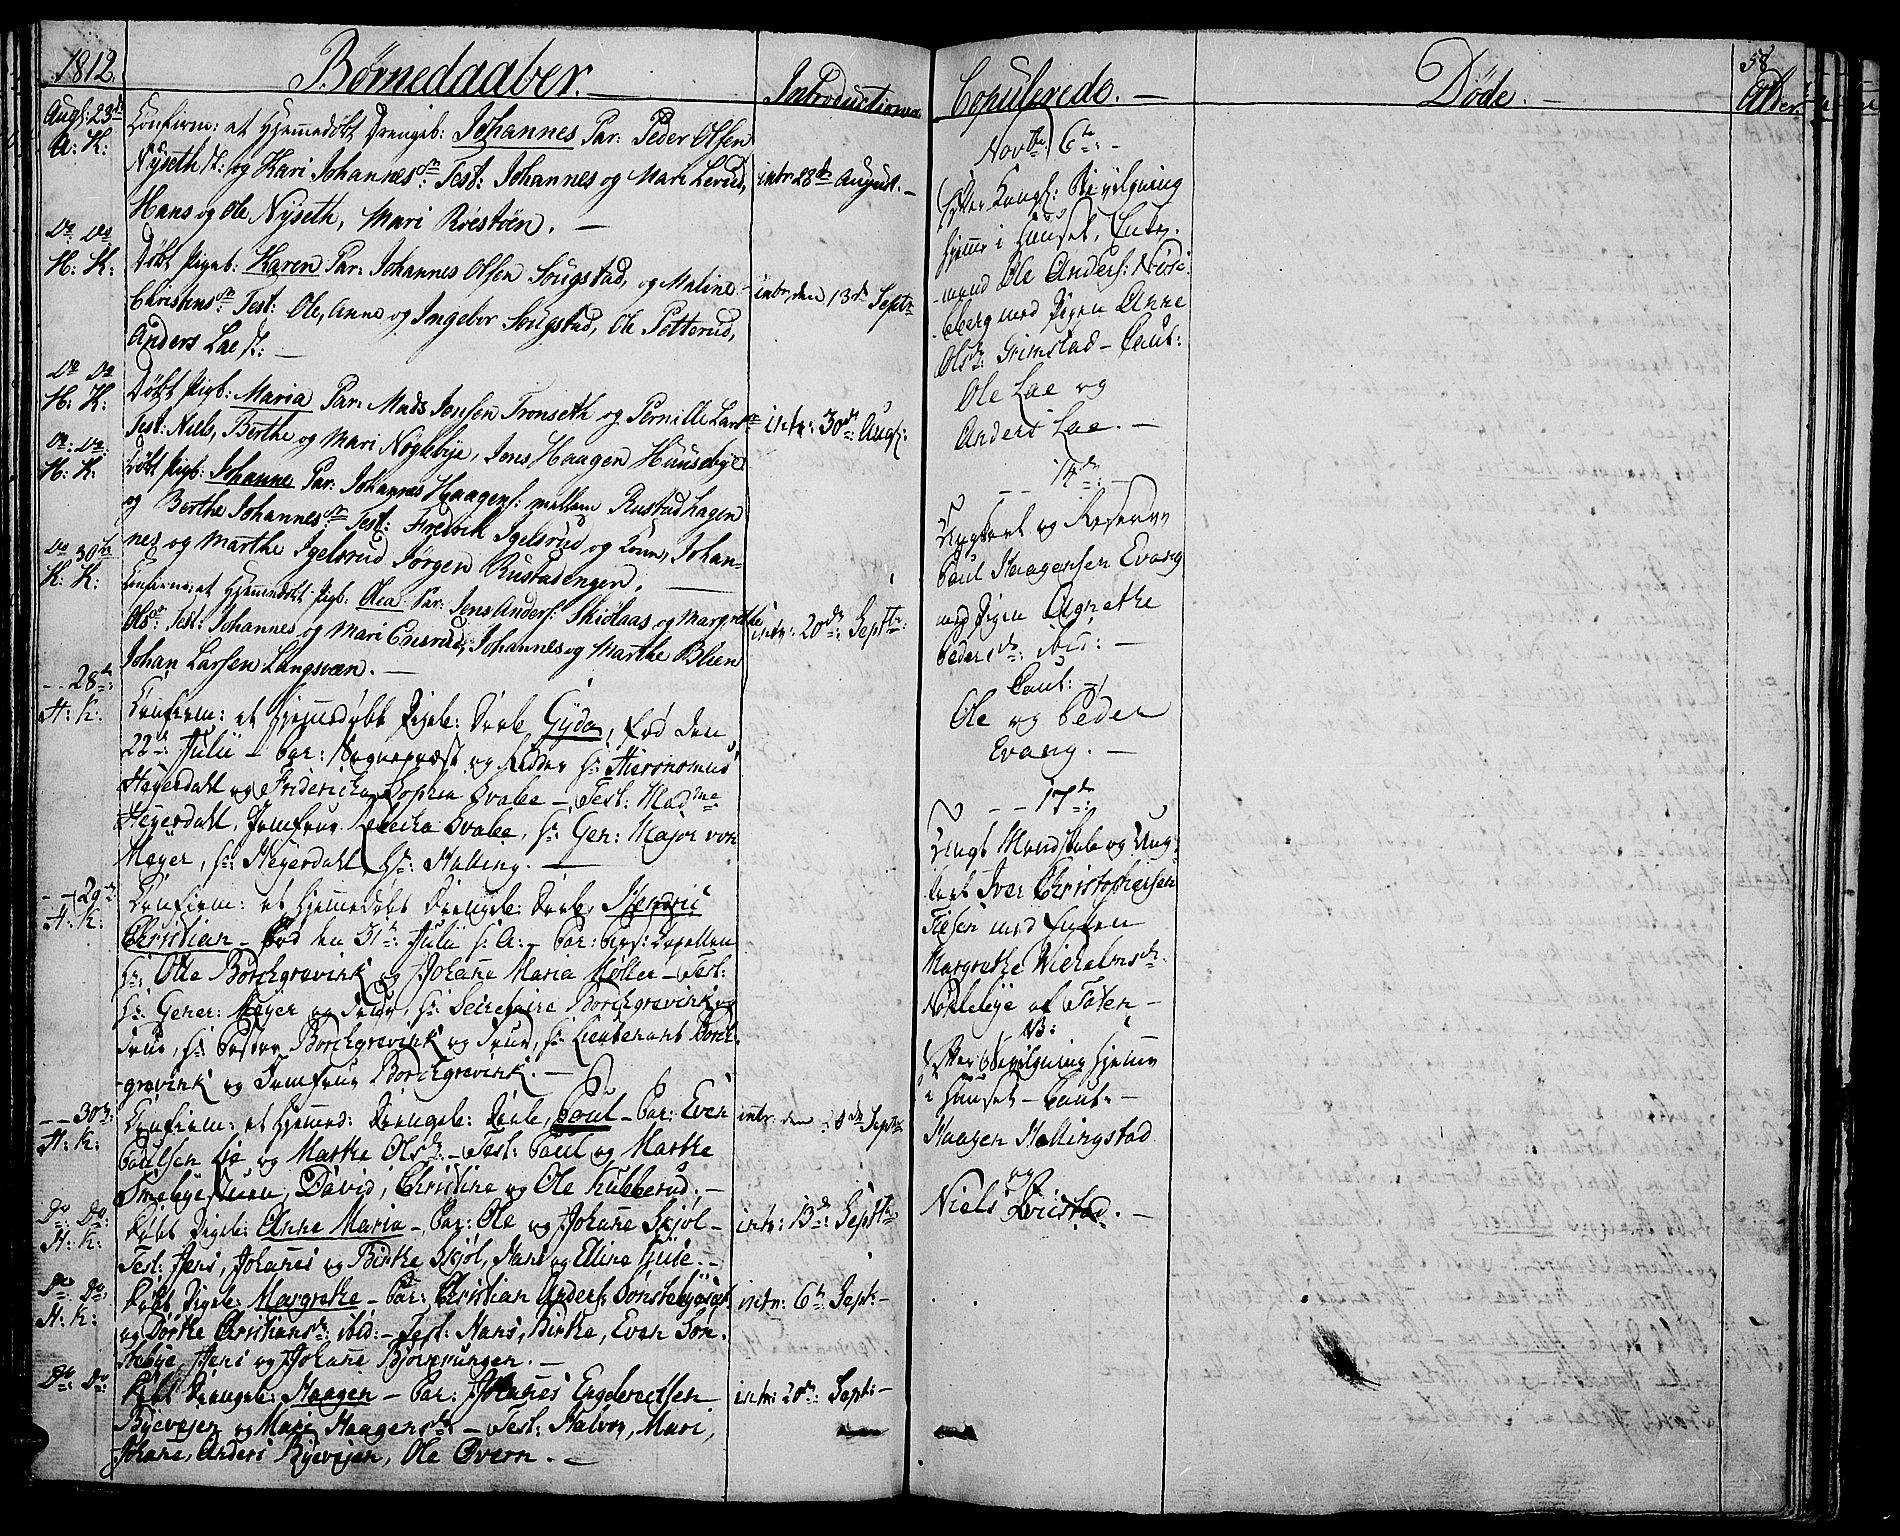 1812.
Børnedaaber. —
Introductioner
Copulerede. —
Døde. —
58
Alder.
Aug: 23de
A: K:
Confirm: et Hjemmedøbt Drengeb: Johannes Par: Peder Olsen
Nyseth st: og Kari Johannesdr: Test: Johannes og Mari Lerud,
Hans og Ole Nyseth, Mari
intr: 28de August. —
Do Do
H: K:
Døbt Pigeb: Karen Par: Johannes Olsen Sougstad, og Maline
Christensdr Test: Ole, Anne og Ingebor Sougstad, Ole Potterud,
Anders Lae st: —
intr, den 13de Septr
Do Do
H: K:
Døbt Pigb: Maria Par: Mads Jensen Tronseth og Pernille Larsdr
Test: Niels, Berthe og Mari Nøglebye, Jens Haagen Huusebye
intr: 30de: Aug:
Do: Do:
H: K:
Døbt Pigb: Johanne Par: Johannes Haagens: mellem Rustadhagen
og Berthe Johannesdr Test: Fredrik Igelsrud og Kone, Johan-
nes og Marthe Igelsrud Jørgen Rustadengen. —
Do 30te
K: K:
Confirm: et Hjemmedøbt Pigb: Olea Par: Jens Anders: Skiølaas og Margrethe
Olsdr Test: Johannes og Mari Johannes og Marthe Blien
Johan Larsen Langsvæn. —
intr: 20de: Septbr:
— — 28de:
H: K:
Confirm: et Hjemmedøbt Pigeb: Døbt Gyda, fød den
22de Julii — Par: Sognepræst og Ridder Hr: Hieronomus
Heyerdahl og Fridericha Sophia Svabe — Test: Madme
Heyerdahl, Jomfrue Svabe, Hr: Gen: Major von
Meyer, Hr: Heyerdahl Hr: Halling. —
— — 29de
H: K:
Confirm: et Hjemmedøbt Drengeb: Døbt Hendric
Christian — Fød den 31te: Julii h: A: — Par: Pers: Capellan
Hr: Ole Borchgrevink og Johane Maria Møller — Test:
Hr: Gener: Meyer og Frue, Hr: Secretaire Borchgrevink og
Frue, Hr: Pastor Borchgrevink og Frue, Hr: Lieutenant Borch-
grevink og Jomfrue Borchgrevink. —
— — 30te:
H: K:
Confirm: et Hjemmed: Drengeb: Døbt, Poul — Par: Even
Paulsen Lie og Marthe Olsdr: — Test: Paul og Marthe
Smebyestuen, David, Christine og Ole Kubberud. —
intr: den 8de Septr
Do: Do:
H: K:
Døbt Pigeb: Anne Maria — Par: Ole og Johane Skjøl —
Test: Jens, Johanes og Birthe Skjøl, Hans og Eline Huse. —
intr: 13de: Septbr
Do: Do:
H: K:
Døbt Pigeb: Margrethe — Par: Christian Anders: Sønstebyeiet
og Dorthe Christiansdr: ibid: — Test: Hans, Birthe, Even Søn-
stebye, Jens og Johane Bjørnerungen. —
intr: 6te: Sept: —
Do: Do:
Døbt Drengeb: Haagen — Par: Johanes Engebretsen
Byevejen og Mari Haagensdr — Test: Halvor, Mari,
Johane, Anders Byevejen, Ole Overn. —
intr: 20de: Sept: —
Novbr: 6te: —
Efter Kongl: Bevilgning
hjemme i Huuset, Enke-
mand Ole Anders:
berg med Pigen Anne
Olsdr: Grimstad — Caut:
Ole Lae og
Anders Lae. —
— — 14de: —
Ungkarl og Reserve
Paul Haagensen Evang
med Pigen Agnethe
Pedersdr: ibid: —
Caut: —
Ole og Peder
Evang. —
— — 17de:
Ungt Mandskab og Ung-
karl Iver Christophersen
med Enken
Margrethe Wilhelmsdr:
af Toten —
NB:
Efter Bevilgning hjemme
i Huuset — Caut: —
Haagen Hollingstad
og
Niels